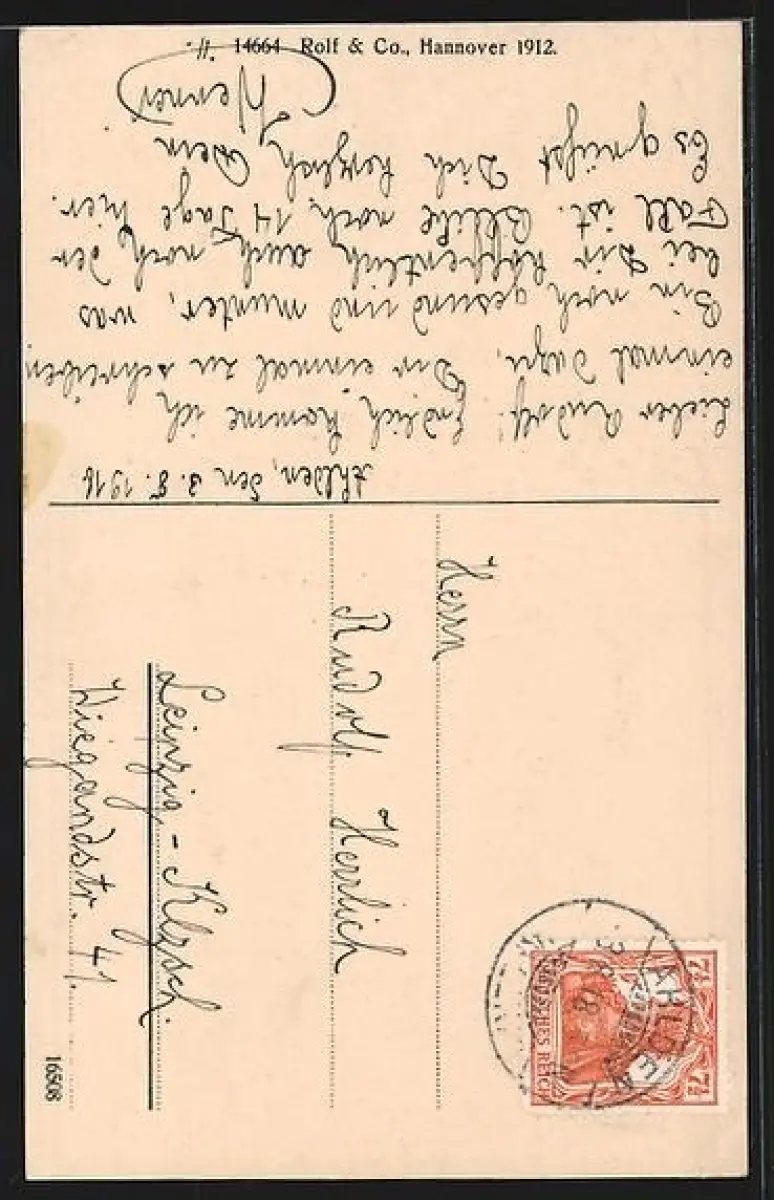 14664 Rolf & Co., Hannover 1912.
Ahlden, den 3. 8. 1918
Lieber Rudolf! Endlich komme ich
einmal dazu, Dir einmal zu schreiben
Bin noch gesund und munter, was
bei Dir hoffentlich auch noch der
Fall ist. Bleibe noch 14 Tage hier.
Es grüßt Dich herzlich Dein
Werner
Herrn
Rudolf Herrlich
Leipzig - Klzsch.
Wiegandstr. 41.
16508
AHLDEN
3 8 18
7½ 7½
DEUTSCHES REICH